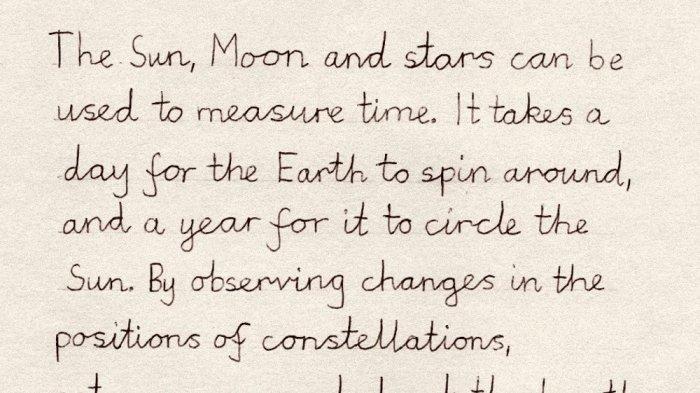 The Sun, Moon and stars can be
used to measure time. It takes a
day for the Earth to spin around,
and a year for it to circle the
Sun. By observing changes in the
positions of constellations,